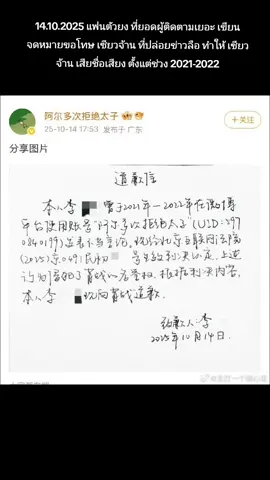 14.10.2025 แฟนตัวยง ที่ยอดผู้ติดตามเยอะ เขียน
จดหมายขอโทษ เซียวจ้าน ที่ปล่อยข่าวลือ ทำให้ เซียว
จ้าน เสียชื่อเสียง ตั้งแต่ช่วง 2021-2022
阿尔多次拒绝太子
+关注
25-10-14 17:53 发布于 广东
分享图片
道歉信
本人李 曾于2021年-2022年在微博
平台使用账号"阿尔多次拒绝太子"(UID:
0840199)发表不当言论。现经北京互联网法院
(2025)京0491民初 号 判决认定,上述
行为侵犯了肖战的名誉权。根据判决内容,
本人李 现向肖战道歉。
致歉人:李
2025年10月14日.